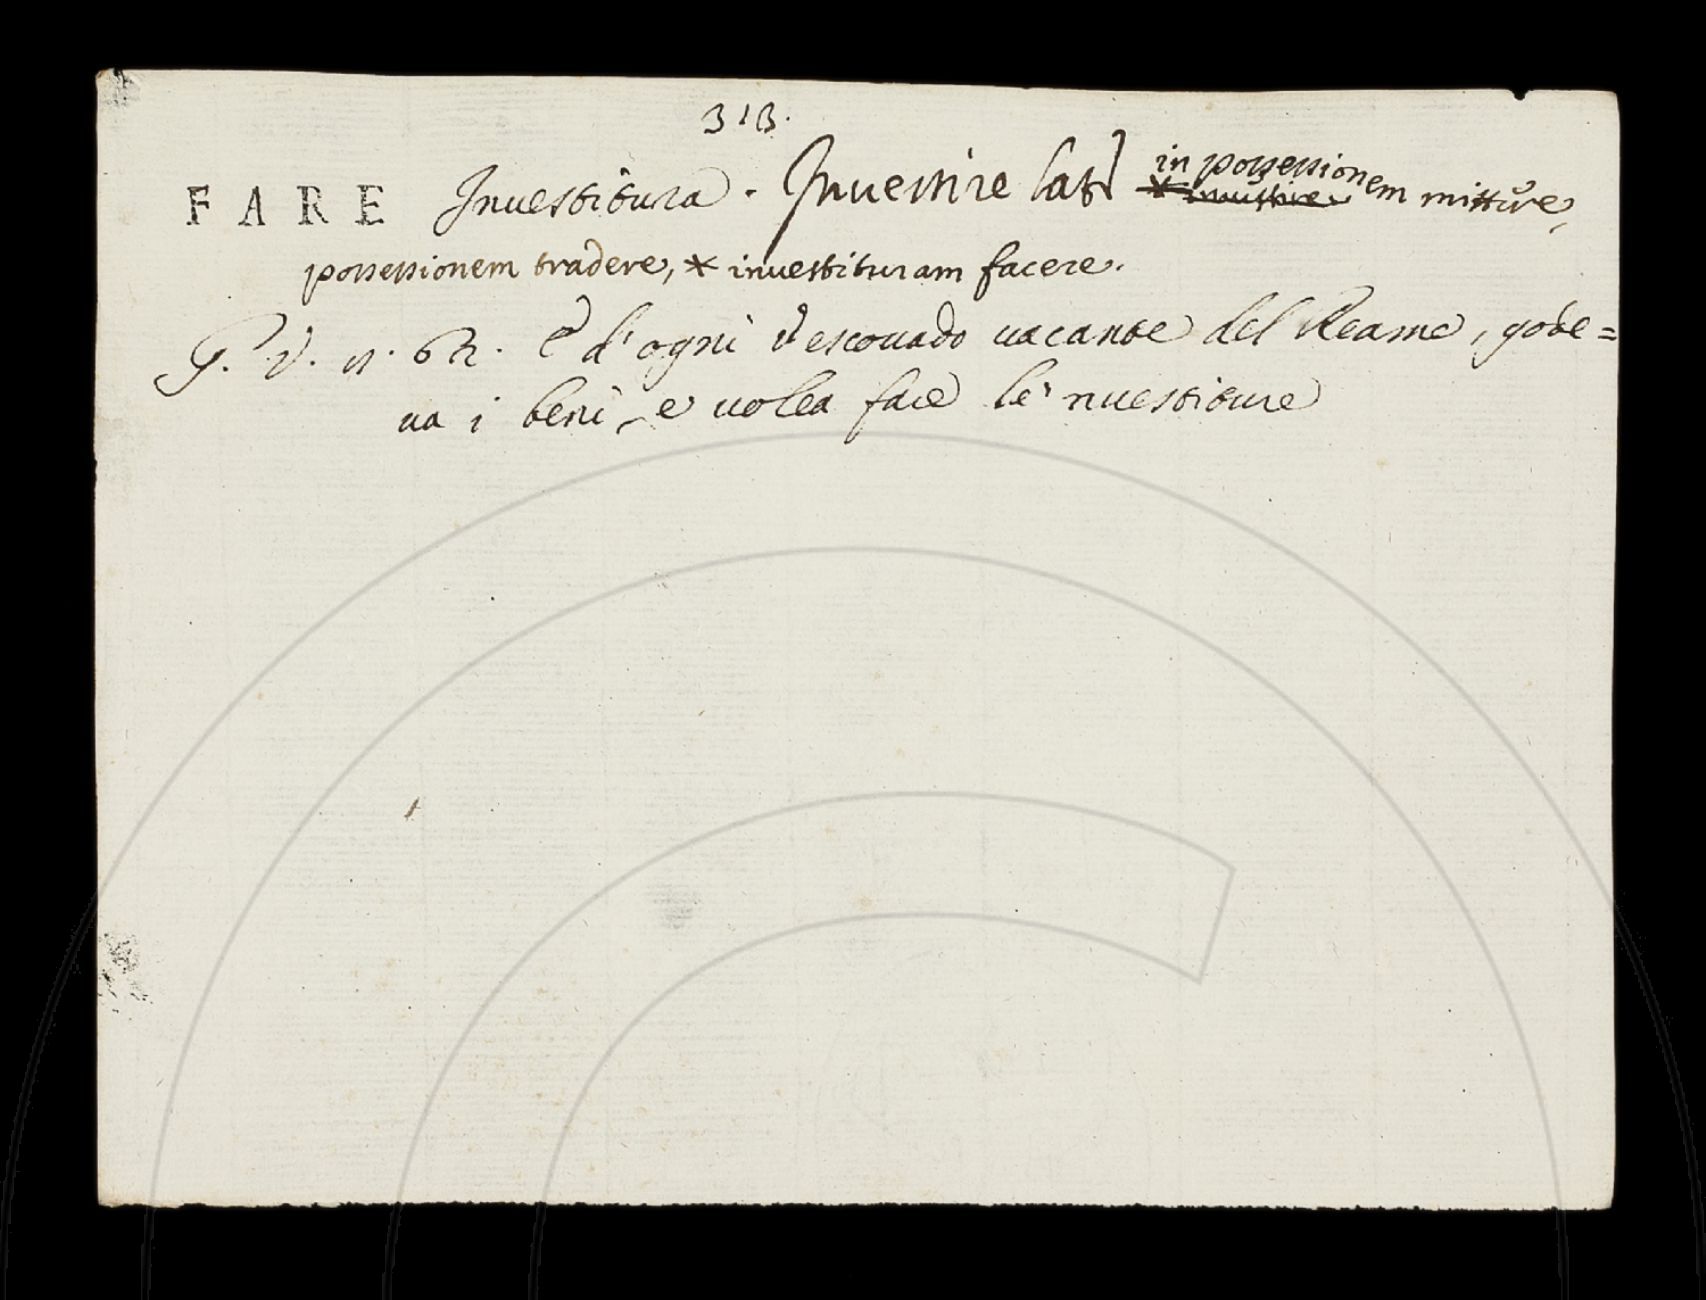 313.
FARE Investitura. Investire lat in possessionem mittere,
possessionem tradere, * investituram facere.
G. V. 11. 62. E d'ogni Vescovado vacante del Reame, gode=
va i beni, e volea fare le 'nvestiture